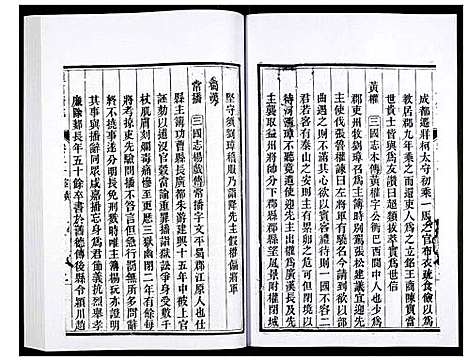 成都遷牂柯太守初乘一馬之官布衣蔬食儉以爲
教居郡九年乘馬而還吏人爲之立銘王商陳實當
世貴士皆與爲友識曰超類拔萃實爲世信
黃權 三國志本傳黃權字公衡巴西閬中人也少爲
郡吏州牧劉璋召爲主簿時別駕張松建議宜迎先
主使伐張魯權諫曰左將軍有驍名今請到欲以部
曲遇之則不滿其心欲以賓客禮待則一國不容二
君若客有泰山之安則主有累卵之危可但閉境以
待河清璋不聽竟遣使迎先主出權爲廣漢長及先
主襲取益州將帥分下郡縣郡縣望風景附權閉城
堅守須劉璋稽服乃詣降先主假權偏將軍
蜀漢
常播 三國志楊戲傳常播字文平蜀郡江原人也仕
縣主簿功曹縣長廣都朱游建興十五年中被上官
誣劾以逋沒官穀當論重罪播詣獄訟爭身受數千
杖肌膚刻爛毒痛慘至更歷三獄幽閉二年有餘每
將考掠吏先驗問播不答言但急行罰無所多問辭
終不撓事遂分明長免刑戮時唯主簿楊玩亦證明
其事與播辭同眾咸嘉播忘身爲君節義抗烈舉孝
廉除郪長年五十餘卒書於舊德傳後縣令潁川趙